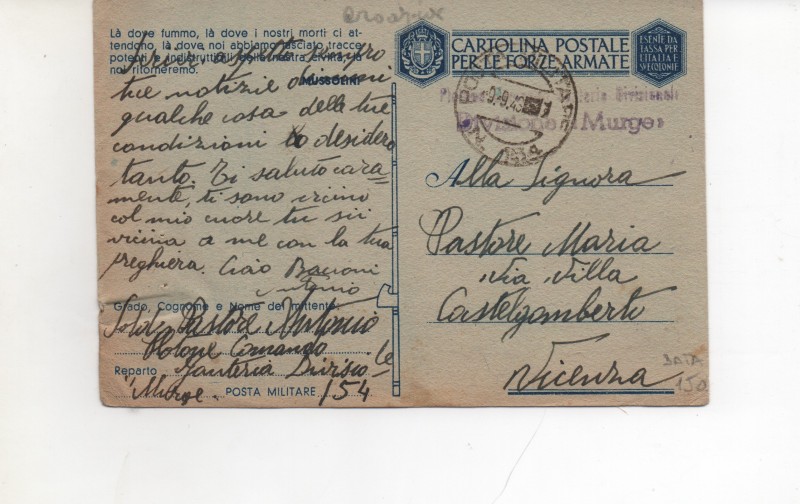 Là dove fummo, là dove i nostri morti ci at-
tendono, là dove noi abbiamo lasciato tracce
potenti e indistruttibili della nostra civiltà, là
noi ritorneremo.
MUSSOLINI
Scrivi aspetto sempre
tue notizie
qualche cosa delle tue
condizioni lo desidero
tanto. Ti saluto cara=
mente, ti sono vicino
col mio cuore tu sii
vicina a me con la tua
preghiera. Ciao Bacioni
Antonio
Grado, Cognome e Nome del mittente:
Soldo Pastore Antonio
Plotone Comando
Reparto Fanteria Divisio=le
"Murge" POSTA MILITARE 154
CARTOLINA POSTALE
PER LE FORZE ARMATE
ESENTE DA
TASSA PER
L'ITALIA
E COLONIE
POSTA MILITARE
9.9.43
Fanteria Divisionale
Divisione "Murge"
Alla Signora
Pastore Maria
Via Villa
Castelgomberto
Vicenza
DATA
150